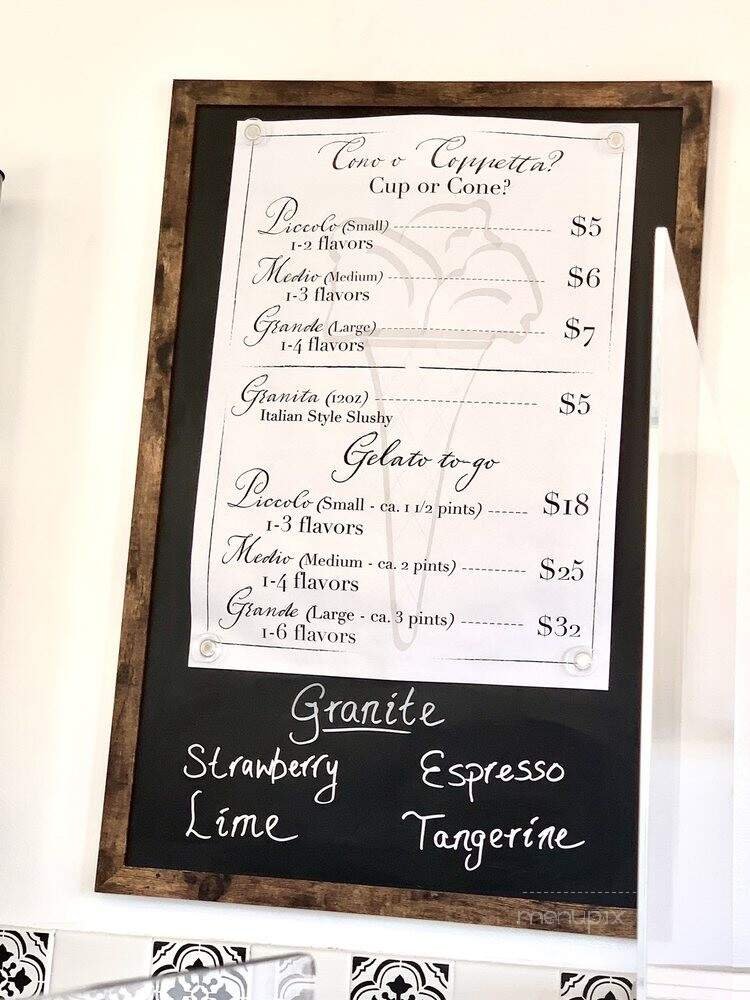 Cono o Coppetta?
Cup or Cone?
Piccolo (Small) $5
1-2 flavors
Medio (Medium) $6
1-3 flavors
Grande (Large) $7
1-4 flavors
Granita (12oz) $5
Italian Style Slushy
Gelato to-go
Piccolo (Small - ca. 1 1/2 pints) $18
1-3 flavors
Medio (Medium - ca. 2 pints) $25
1-4 flavors
Grande (Large - ca. 3 pints) $32
1-6 flavors
Granite
Strawberry Espresso
Lime Tangerine
menupix